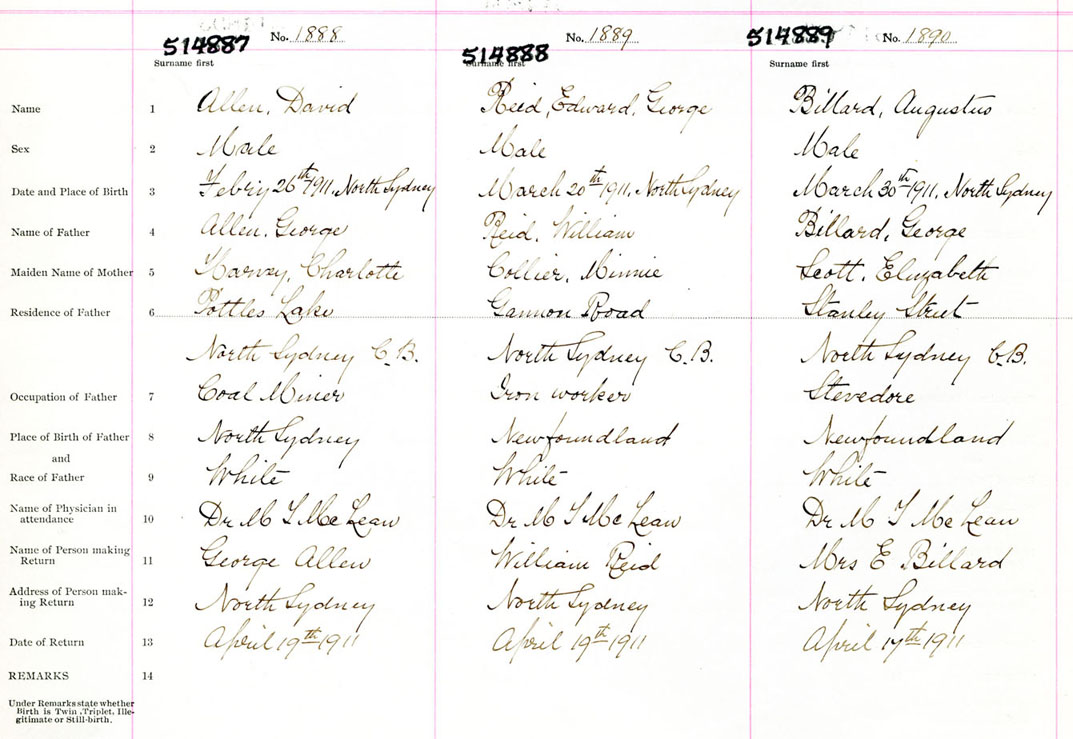 514887 No. 1888 514888 No. 1889 514889 No. 1890
Surname first Surname first Surname first
Name 1 Allen, David Reid, Edward, George Billard, Augustus
Sex 2 Male Male Male
Date and Place of Birth 3 Febriy 26th 1911, North Sydney March 20th 1911, North Sydney March 30th 1911, North Sydney
Name of Father 4 Allen, George Reid, William Billard, George
Maiden Name of Mother 5 Harvey, Charlotte Collier, Minnie Scott, Elizabeth
Residence of Father 6 Pottles Lake Gannon Road Stanley Street
North Sydney C.B. North Sydney C.B. North Sydney C.B.
Occupation of Father 7 Coal Miner Iron worker Stevedore
Place of Birth of Father 8 North Sydney Newfoundland Newfoundland
and
Race of Father 9 White White White
Name of Physician in
attendance 10 Dr M T McLean Dr M T McLean Dr M T McLean
Name of Person making
Return 11 George Allen William Reid Mrs E Billard
Address of Person mak-
ing Return 12 North Sydney North Sydney North Sydney
Date of Return 13 April 19th 1911 April 19th 1911 April 17th 1911
REMARKS 14
Under Remarks state whether
Birth is Twin, Triplet, Ille-
gitimate or Still-birth.